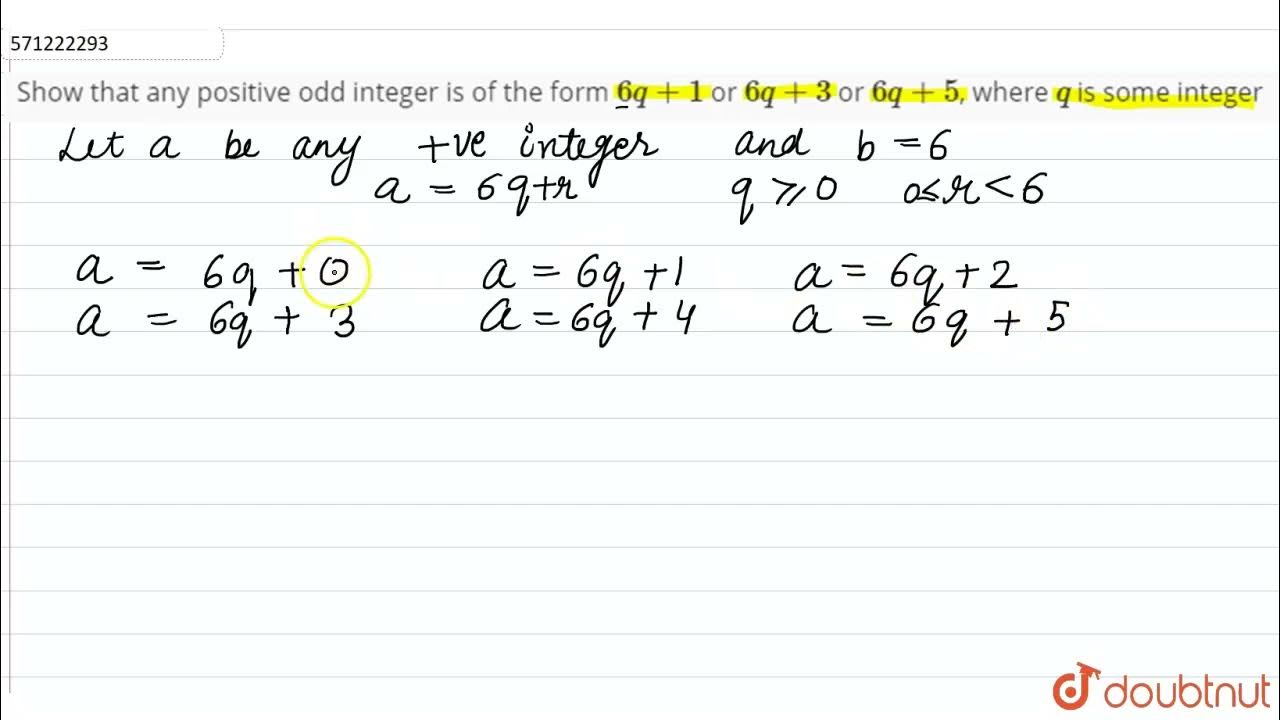 571222293
Show that any positive odd integer is of the form 6q + 1 or 6q + 3 or 6q + 5, where q is some integer
Let a be any +ve integer and b = 6
a = 6q+r q ⩾ 0 0≤r<6
a = 6q + 0 a = 6q +1 a = 6q + 2
a = 6q + 3 a = 6q + 4 a = 6q + 5
doubtnut